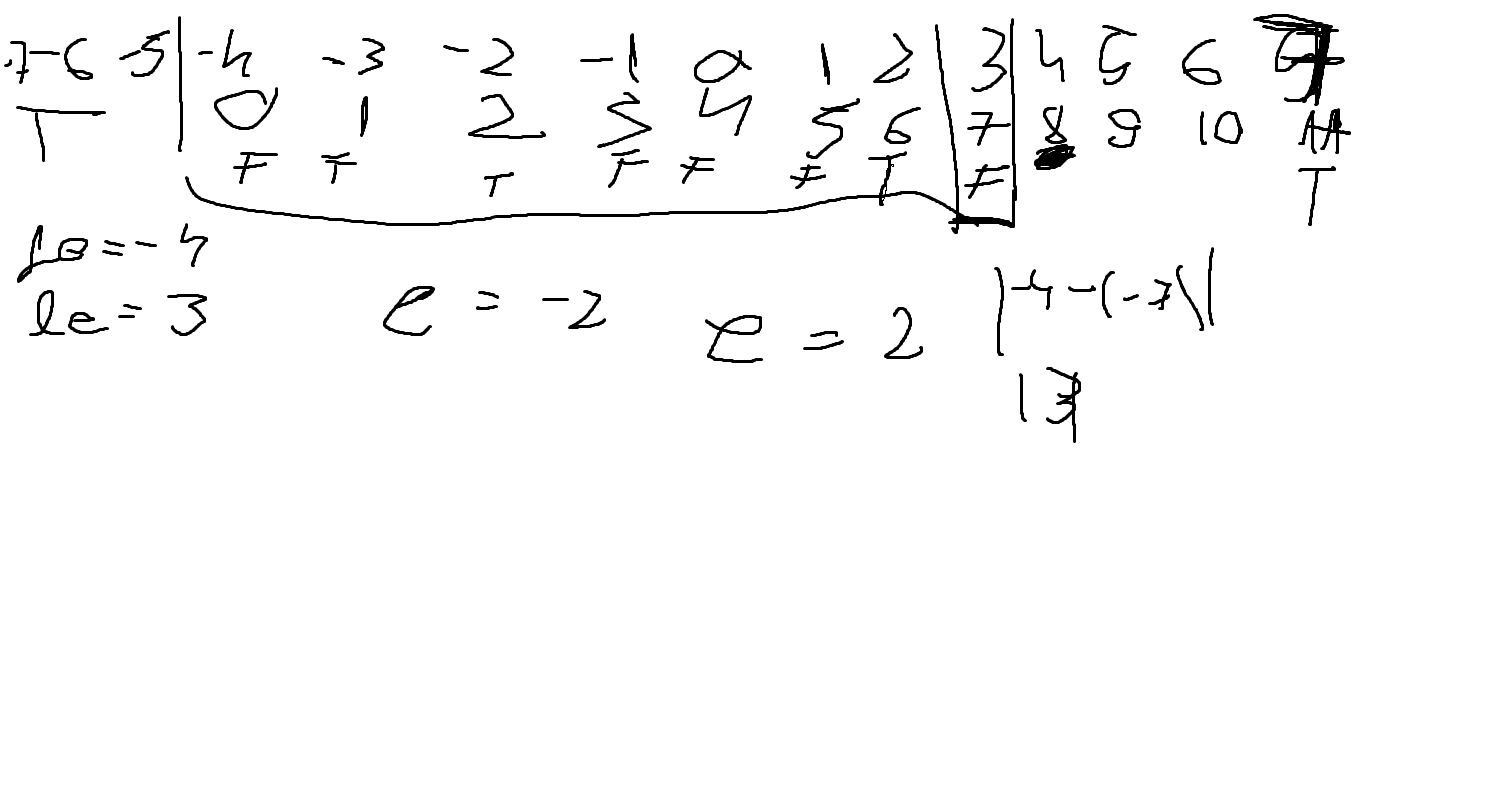 -7 -6 -5 | -4 -3 -2 -1 0 1 2 | 3 | 4 5 6
0 1 2 3 4 5 6 7 8 9 10 11
T F T T F F F T F T
le = -4
le = 3 e = -2 e = 2 |-4-(-7)|
13